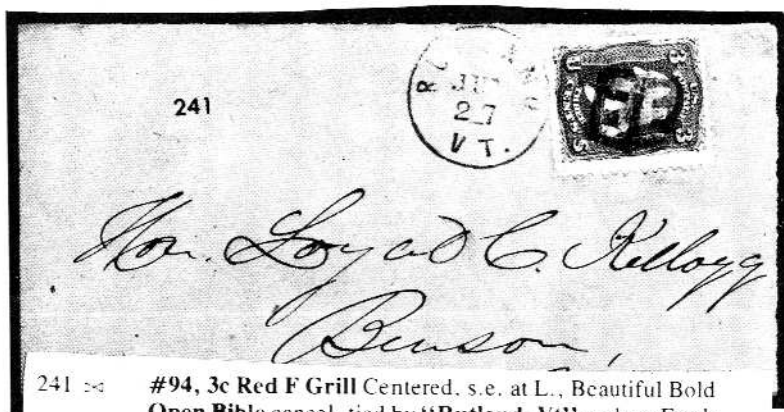 241
27
VT.
Hon. Loyal C. Kellogg
Benson,
241 #94, 3c Red F Grill Centered, s.e. at L., Beautiful Bold
Open Bible cancel, tied by "Rutland, Vt"